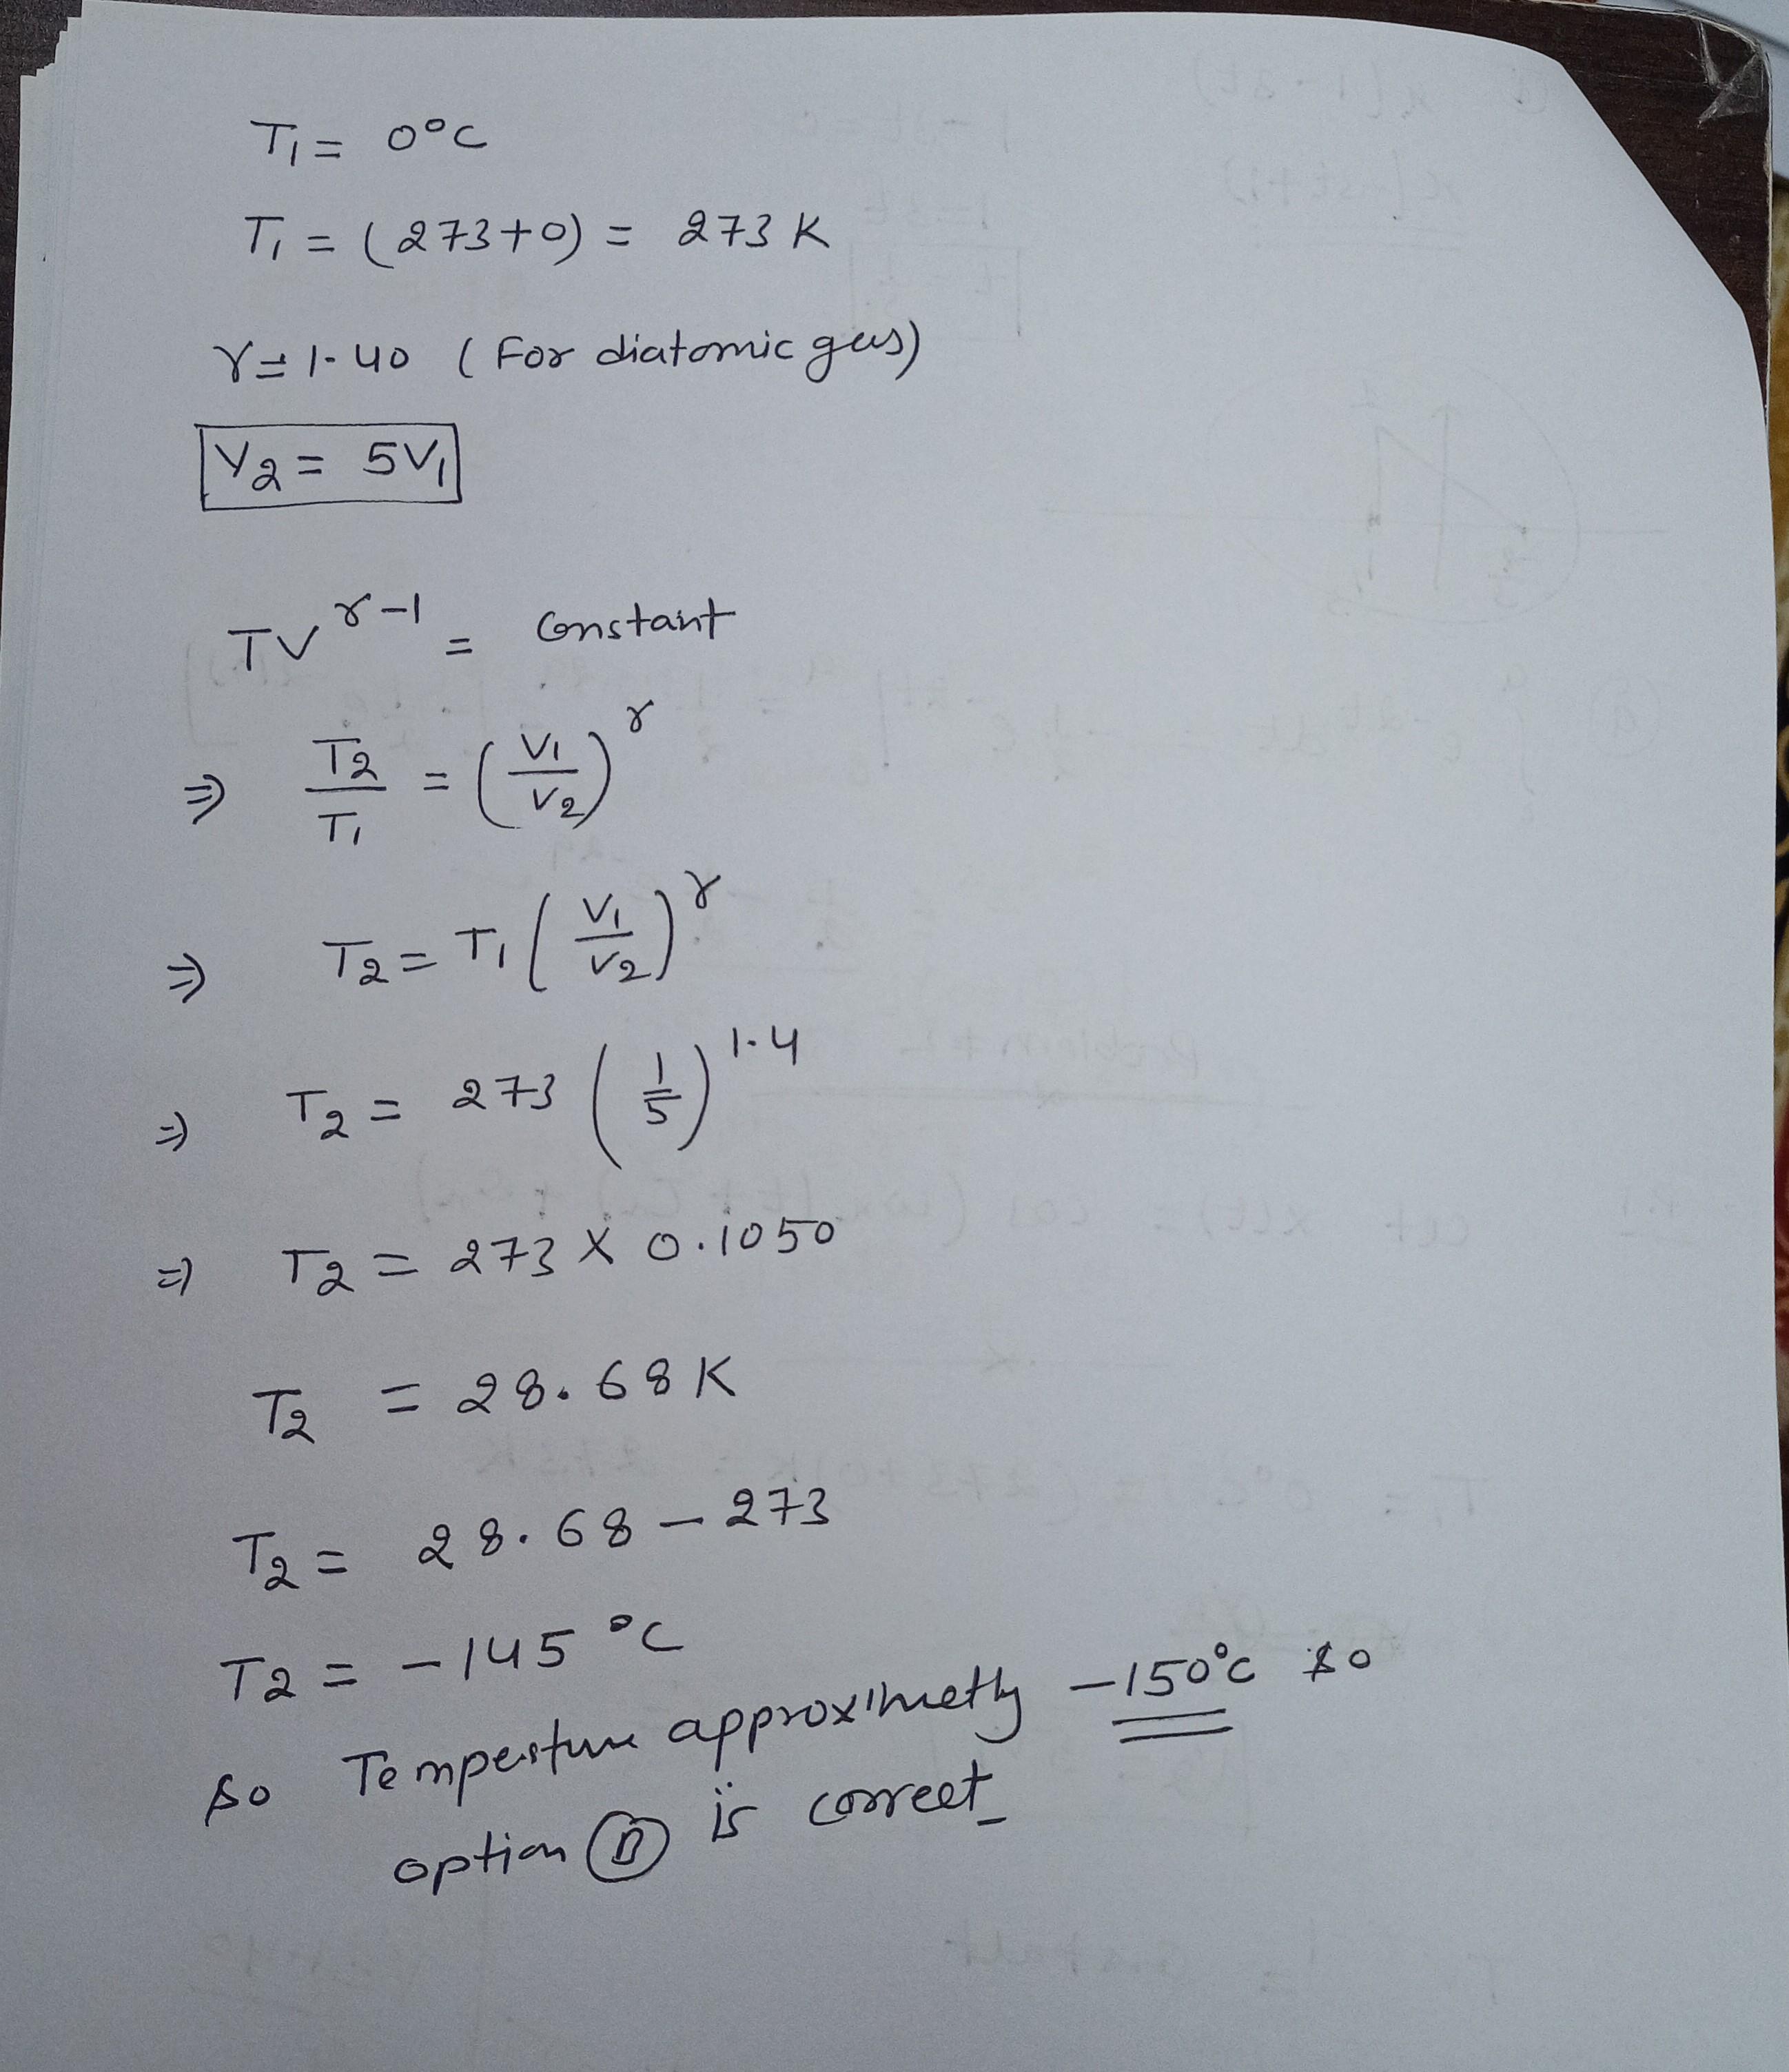 T₁ = 0°C
T₁ = (273+0) = 273 K
γ = 1.40 (For diatomic gas)
V₂ = 5V₁
TV^γ-1 = Constant
⇒ T₂/T₁ = (V₁/V₂)^γ
⇒ T₂ = T₁ (V₁/V₂)^γ
⇒ T₂ = 273 (1/5)^1.4
⇒ T₂ = 273 × 0.1050
T₂ = 28.68 K
T₂ = 28.68 - 273
T₂ = -145 °C
so Temperture approximetly -150°C so
option is correct